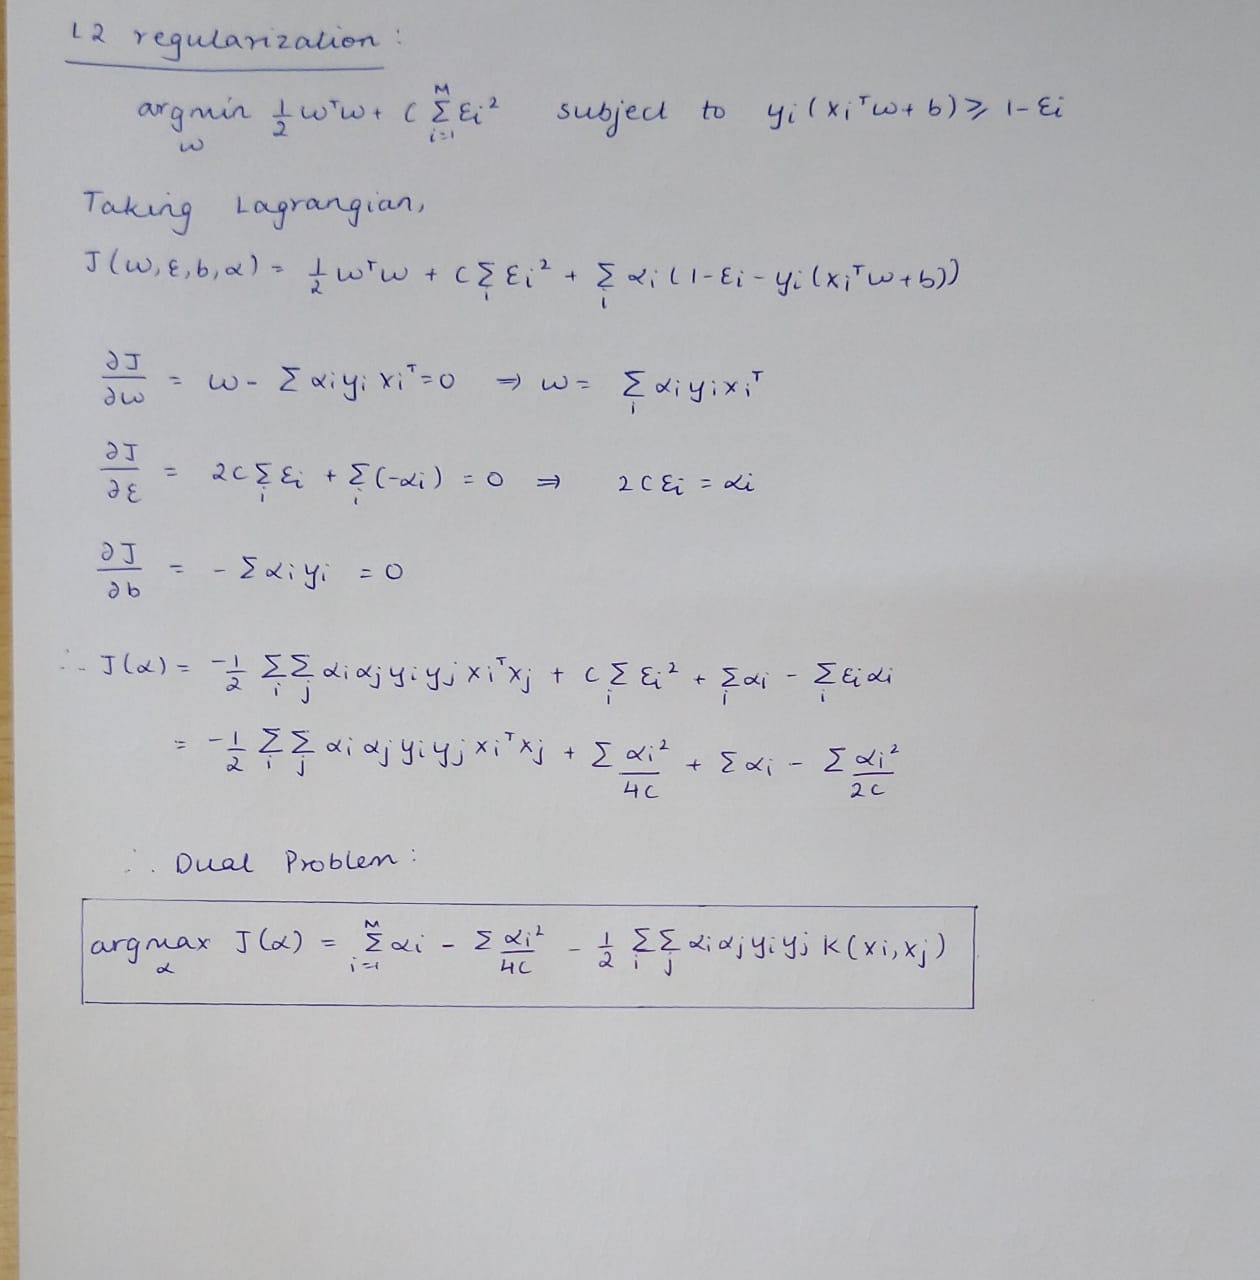 L2 regularization:
argmin_w 1/2 wᵀw + C Σ_{i=1}^{M} εi² subject to yi(xiᵀw + b) ⩾ 1-εi
Taking Lagrangian,
J(w,ε,b,α) = 1/2 wᵀw + C Σ_i εi² + Σ_i αi(1-εi-yi(xiᵀw+b))
∂J/∂w = w - Σ αiyi xiᵀ = 0 ⇒ w = Σ_i αiyixiᵀ
∂J/∂ε = 2C Σ_i εi + Σ_i (-αi) = 0 ⇒ 2Cεi = αi
∂J/∂b = - Σ αiyi = 0
∴ J(α) = -1/2 Σ_i Σ_j αiαjyiyjxiᵀxj + C Σ_i εi² + Σ_i αi - Σ_i εiαi
= -1/2 Σ_i Σ_j αiαjyiyjxiᵀxj + Σ αi²/4C + Σαi - Σ αi²/2C
∴ Dual Problem:
argmax_α J(α) = Σ_{i=1}^{M} αi - Σ αi²/4C - 1/2 Σ_i Σ_j αiαjyiyj K(xi,xj)